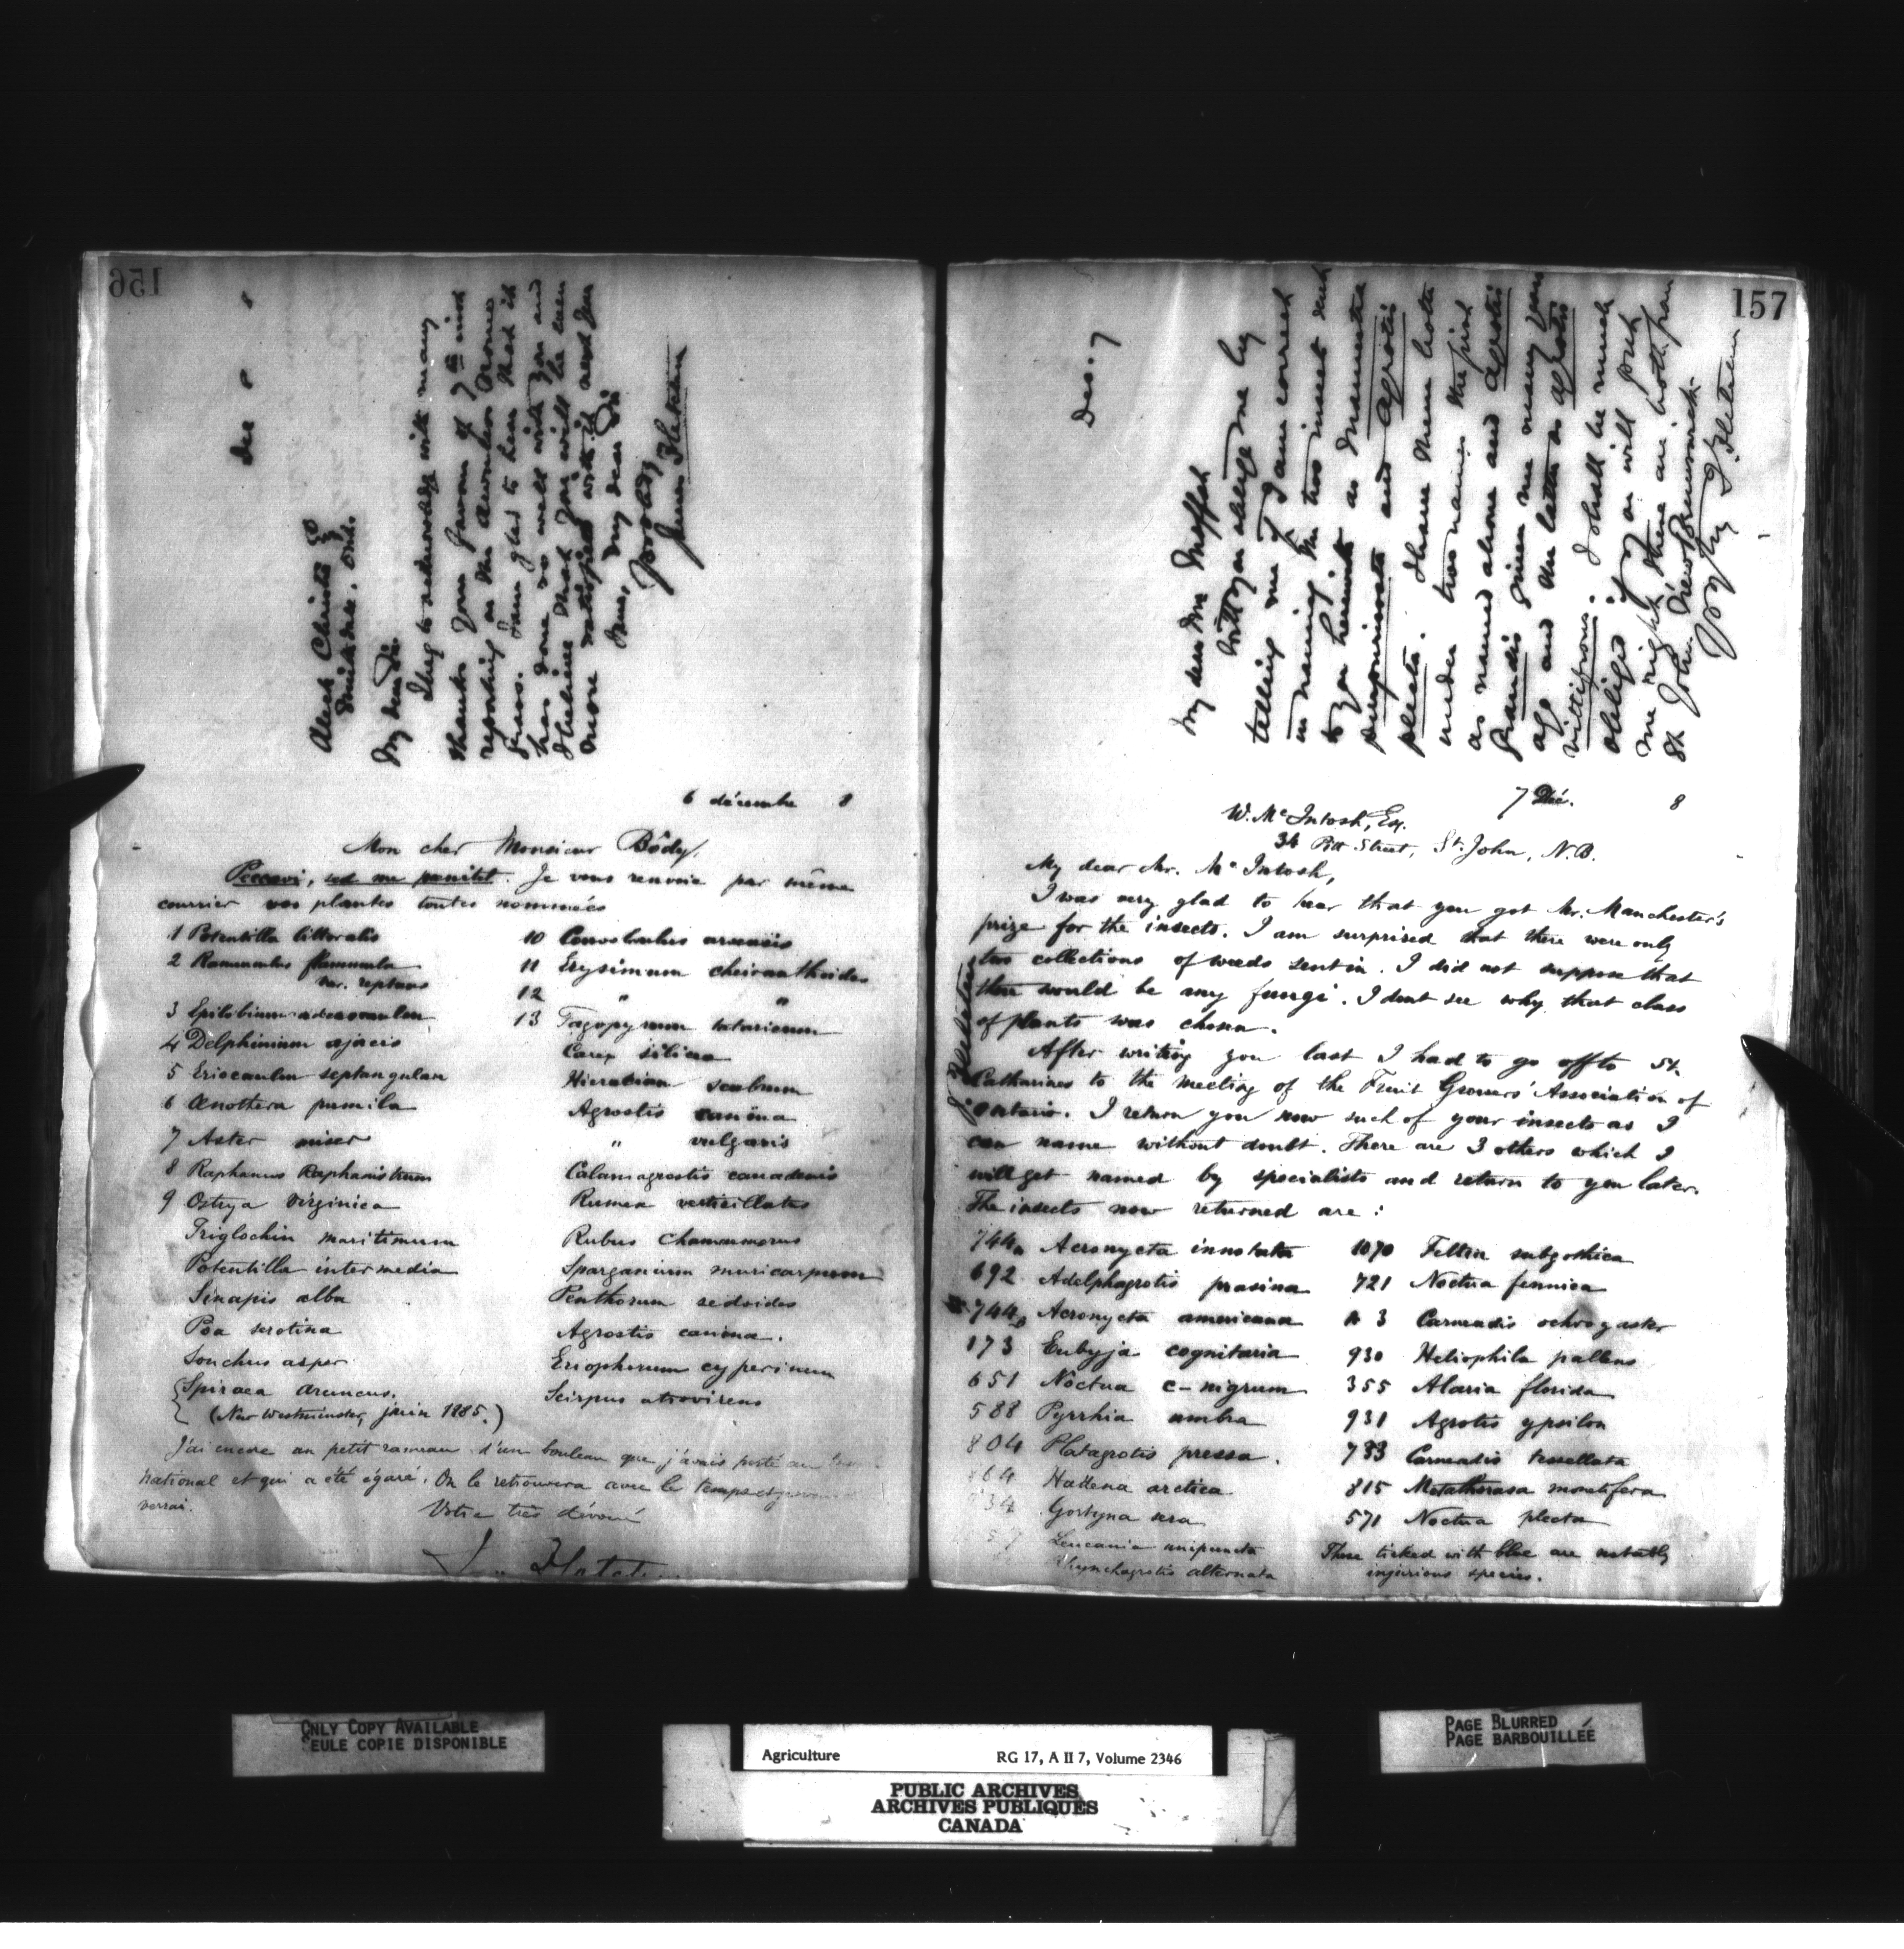 156
Dec 8 8
Alech Christie Esq
Ont.
My dear Sir
I beg to acknowledge with many
thanks your favour of 7th inst
reporting on the Awnless Brome
grass. I am glad to hear that it
has done so well with you and
I believe that you will be even
more satisfied with it next year
I am, my dear Sir
Yours truly
James Fletcher
6 décembre 8
Mon cher Monsieur Bôdy,
Peccavi, sed me penitet. Je vous renvoie par même
courrier vos plantes toutes nommées
1 Potentilla littoralis
2 Ranunculus flammula
var. reptans
3 Epilobium
4 Delphinium ajacis
5 Eriocaulon septangulare
6 Œnothera pumila
7 Aster miser
8 Raphanus Raphanistrum
9 Ostrya Virginica
Triglochin maritimum
Potentilla intermedia
Sinapis alba
Poa serotina
Sonchus asper
Spiraea aruncus.
(New Westminster, juin 1885.)
10 Convolvulus arvensis
11 Erysimum cheiranthoides
12 " "
13 Fagopyrum tataricum
Carex silicea
Hieracium scabrum
Agrostis canina
" vulgaris
Calamagrostis canadensis
Rumex verticillatus
Rubus Chamaemorus
Sparganium
Penthorum sedoides
Agrostis canina.
Eriophorum cyperinum
Scirpus atrovirens
J'ai encore un petit rameau d'un bouleau que j'avais porté au
national et qui a été égaré. On le retrouvera avec le temps et
verrai.
Votre très dévoué
J. Fletcher
157
Dec. 7
My dear Mr Moffat
Will you oblige me by
telling me if I am correct
in naming the two insect sent
to you herewith as Mamestra
and Agrotis
plecta. I have them both
under two names the first
as named above and Agrotis
grandis given me many years
ago and the latter as Agrotis
vittifrons. I shall be much
obliged if you will put
me right there are both from
St John New Brunswick
Yrs try J. Fletcher
7 Dec. 8
W. McIntosh, Esq.
34 Pitt Street, St. John, N.B.
My dear Mr. McIntosh,
I was very glad to hear that you got Mr. Manchester's
prize for the insects. I am surprised that there were only
two collections of weeds sent in. I did not suppose that
there would be any fungi. I dont see why that class
of plants was chosen.
After writing you last I had to go off to St.
Catharines to the meeting of the Fruit Growers' Association of
Ontario. I return you now such of your insects as I
can name without doubt. There are 3 others which I
will get named by specialists and return to you later.
The insects now returned are:
744a Acronycta innotata
692 Adelphagrotis prasina
744b Acronycta americana
173 Eubyja cognitaria
651 Noctua c-nigrum
588 Pyrrhia umbra
804 Platagrotis pressa.
864 Hadena arctica
934 Gortyna sera
Leucania unipuncta
Rhynchagrotis alternata
1070 Feltia subgothica
721 Noctua fennica
A 3 Carneadis ochrogaster
930 Heliophila pallens
355 Alaria florida
931 Agrotis ypsilon
733 Carneadis tessellata
815 Metathorasa monetifera
571 Noctua plecta
Those ticked with blue are notably
injurious species.
J. Fletcher
ONLY COPY AVAILABLE
SEULE COPIE DISPONIBLE
Agriculture RG 17, A II 7, Volume 2346
PUBLIC ARCHIVES
ARCHIVES PUBLIQUES
CANADA
PAGE BLURRED
PAGE BARBOUILLÉE